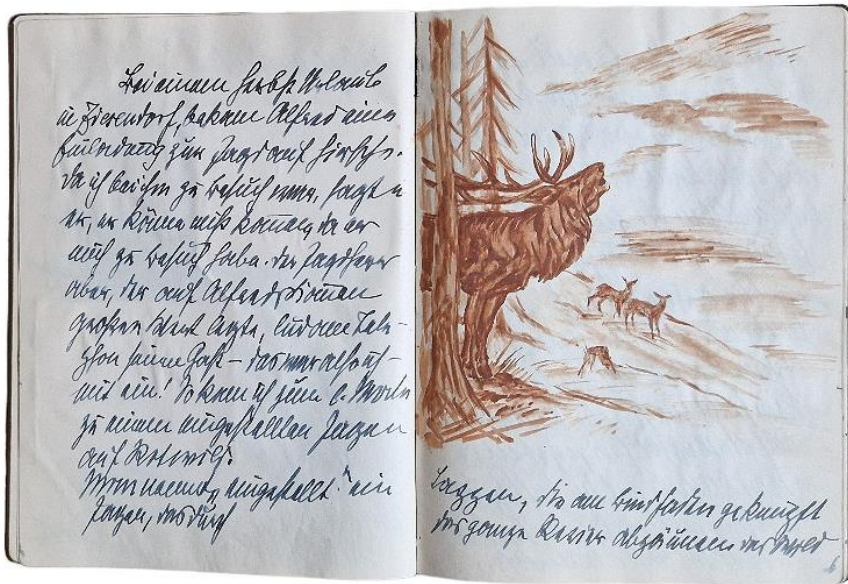 Bei einem Herbst Urlaub
in Zierendorf, bekam Alfred eine
Einladung zur Jagd auf Hirsche.
Da ich bei ihm zu Besuch war, sagte
er, er könne nicht kommen, da er
mich zu Besuch habe. Der Jagdherr
aber, der auf Alfreds
großen Wert legte, lud am Tele-
phon seinen Gast – das war also ich –
mit ein! So kam ich zum 1. Male
zu einem eingestellten Jagen
auf Rotwild.
Man nennt „eingestellt" ein
Jagen, das durch
Lappen, die am Bindfaden geknüpft
das ganze Revier abzäunen das Wild